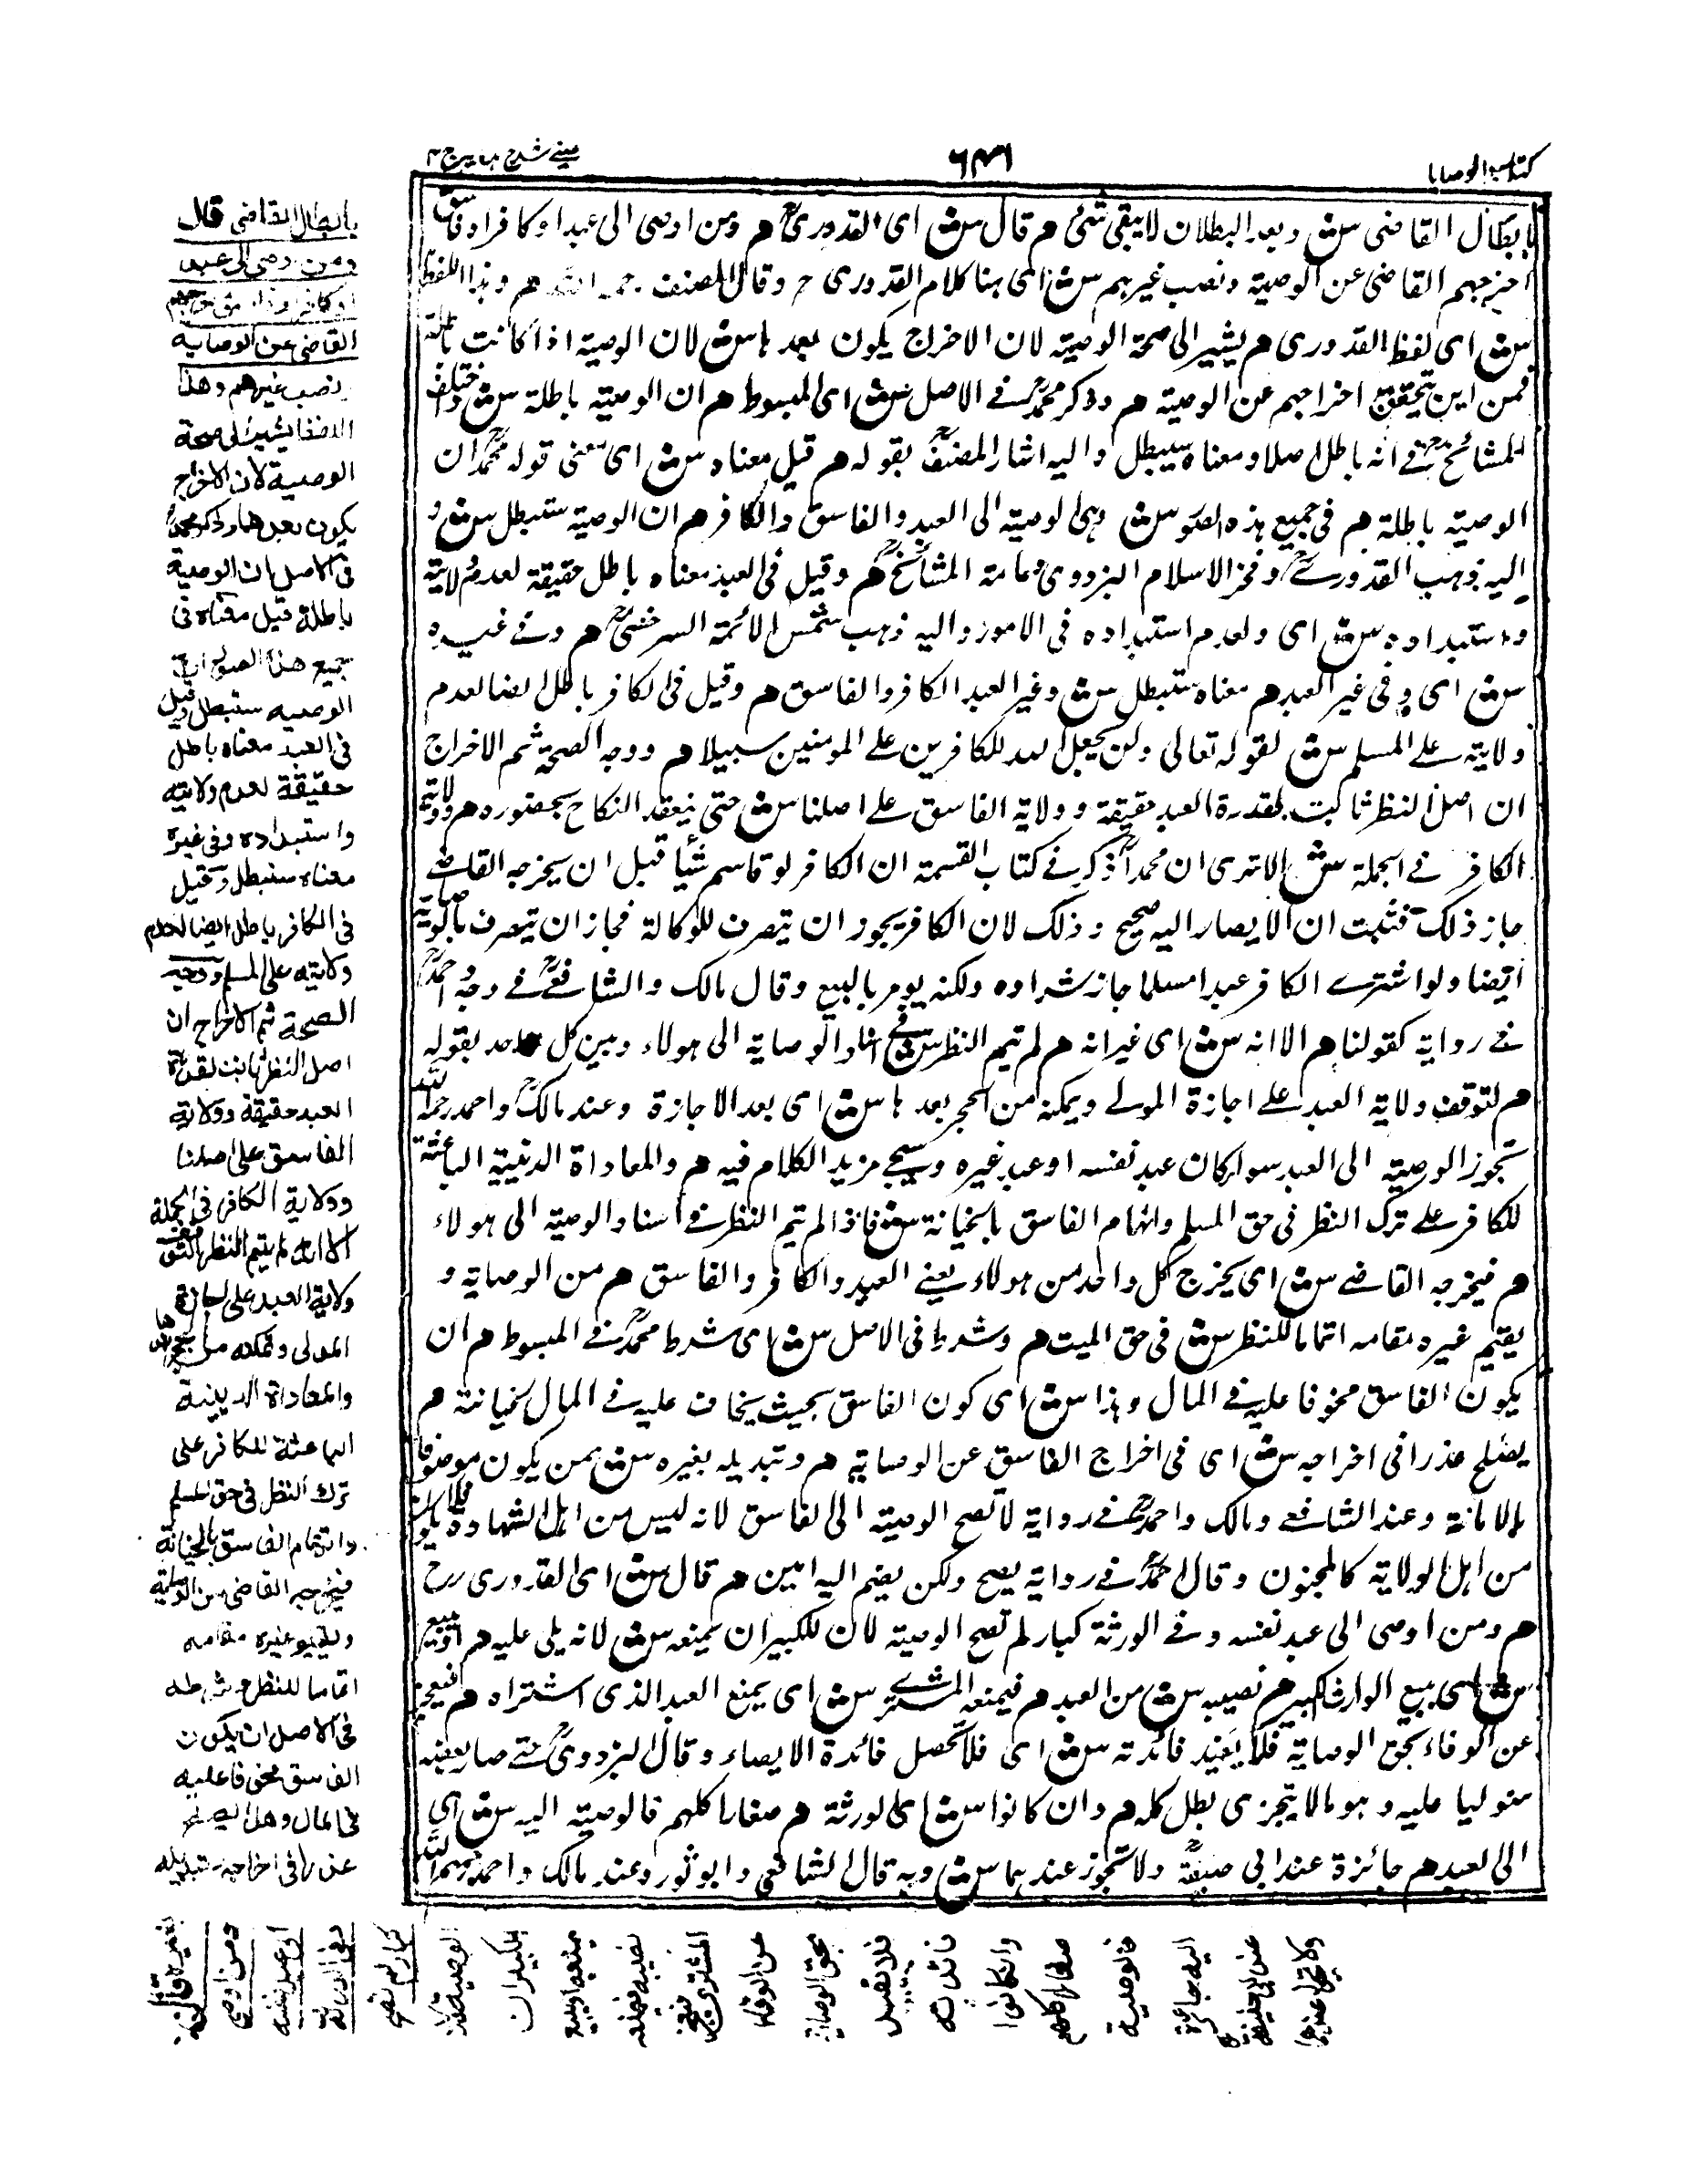 كتاب الوصايا
٦٣١
عينے شرح ہدایہ ج ٤
بابطال القاضى ش وبعد البطلان لا يبقى شئ م قال ش اى القدورىؒ م ومن اوصى الى عبد او كافر او فاسق
اخرجهم القاضى عن الوصية ونصب غيرهم ش اى هنا كلام القدورى م وقال المصنف رحمه الله م وهذا اللفظ
ش اى لفظ القدورى م يشير الى صحة الوصية لان الاخراج يكون بعدها ش لان الوصية اذا كانت باطلة
فمن اين يتحقق اخراجهم عن الوصية م وذكر محمدؒ فے الاصل ش اى المبسوط م ان الوصية باطلة ش واختلف
المشائخؒ فے انه باطل اصلا ومعناه سيبطل واليه اشار المصنفؒ بقوله م قيل معناه ش اى معنى قوله محمدؒ ان
الوصية باطلة م فى جميع هذه الصور ش وهى الوصية الى العبد والفاسق والكافر م ان الوصية ستبطل ش و
اليه ذهب القدورےؒ وفخر الاسلام البزدوىؒ وعامة المشائخؒ م وقيل فى العبد معناه باطل حقيقة لعدم ولايته
واستبداده ش اى ولعدم استبداده فى الامور واليه ذهب شمس الائمة السرخسىؒ م وفے غيره
ش اى وفى غير العبد م معناه ستبطل ش وغير العبد الكافر والفاسق م وقيل فى الكافر باطل ايضا لعدم
ولايته على المسلم ش لقوله تعالى ولن يجعل الله للكافرين على المومنين سبيلا م ووجه الصحة ثم الاخراج
ان اصل النظر ثابت لقدرة العبد حقيقة وولاية الفاسق على اصلنا ش حتى ينعقد النكاح بحضوره م وولاية
الكافر فے الجملة ش الا ترى ان محمداؒ ذكر فے كتاب القسمة ان الكافر لو قاسم شيئا قبل ان يخرجه القاضے
جاز ذلك فثبت ان الايصاء اليه صحيح وذلك لان الكافر يجوز ان يتصرف للوكالة فجاز ان يتصرف بالوصاية
ايضا ولو اشترے الكافر عبدا مسلما جاز شراوه ولكنه يومر بالبيع وقال مالك والشافعےؒ فے وجه واحمدؒ
فے رواية كقولنا م الا انه ش اى غير انه م لم يتم النظر ش فے اسناد الوصاية الى هولاء وبين كل واحد بقوله
م لتوقف ولاية العبد على اجازة المولے ويمكنه من الحجر بعدها ش اى بعد الاجازة وعند مالكؒ واحمد رحمه الله
تجوز الوصية الى العبد سواء كان عبد نفسه او عبد غيره وسيجے مزيد الكلام فيه م والمعاداة الدينية الباعثة
للكافر على ترك النظر فى حق المسلم واتهام الفاسق بالخيانة ش فاذا لم يتم النظر فے اسناد الوصية الى هولاء
م فيخرجه القاضے ش اى يخرج كل واحد من هولاء يعنے العبد والكافر والفاسق م من الوصاية و
يقيم غيره مقامه اتماما للنظر ش فى حق الميت م وشرط فى الاصل ش اى شرط محمدؒ فے المبسوط م ان
يكون الفاسق مخوفا عليه فے المال وهذا ش اى كون الفاسق بحيث يخاف عليه فے المال لخيانته م
يصلح عذرا فى اخراجه ش اى فى اخراج الفاسق عن الوصاية م وتبديله بغيره ش بمن يكون موصوفا
بالامانة وعند الشافعے ومالك واحمدؒ فے رواية لا تصح الوصية الى الفاسق لانه ليس من اهل الشهادة فلا يكون
من اهل الولاية كالمجنون وقال احمدؒ فے رواية يصح ولكن يضم اليه امين م قال ش اى القدورى رح
م ومن اوصى الى عبد نفسه وفے الورثة كبار لم تصح الوصية لان للكبير ان يمنعه ش لانه يلى عليه م او يبيع
ش اى يبيع الوارث الكبير م نصيبه ش من العبد م فيمنعه المشترے ش اى يمنع العبد الذى اشتراه م فيعجز
عن الوفاء بحق الوصاية فلا يفيد فائدته ش اى فلا تحصل فائدة الايصاء وقال البزدوىؒ حتے صار بعضه
متوليا عليه وهو مالا يتجزى بطل كله م وان كانوا ش اى الورثة م صغارا كلهم فالوصية اليه ش اى
الى العبد م جائزة عند ابى حنيفةؒ ولا تجوز عندهما ش وبه قال الشافعى وابو ثور وعند مالك واحمد رحمهما الله
بابطال القاضى قال
ومن اوصى الى عبد
او كافر او فاسق اخرجهم
القاضى عن الوصايه
ونصب غيرهم وهذا
اللفظ يشير الى صحة
الوصية لان الاخراج
يكون بعدها وذكر محمدؒ
فى الاصل ان الوصية
باطلة قيل معناه فى
جميع هذه الصور ان
الوصيه ستبطل وقيل
فى العبد معناه باطل
حقيقة لعدم ولايته
واستبداده وفى غيره
معناه ستبطل وقيل
فى الكافر باطل ايضا لعدم
ولايته على المسلم ووجه
الصحة ثم الاخراج ان
اصل النظر ثابت لقدرة
العبد حقيقة وولاية
الفاسق على اصلنا
وولاية الكافر فى الجملة
الا انه لم يتم النظر لتوقف
ولاية العبد على اجازة
المولى وتمكنه من الحجر بعدها
والمعاداة الدينية
الباعثة للكافر على
ترك النظر فى حق المسلم
واتهام الفاسق بالخيانة
فيخرجه القاضى من الوصاية
ويقيم غيره مقامه
اتماما للنظر وشرط
فى الاصل ان يكون
الفاسق مخوفا عليه
فى المال وهذا يصلح
عذرا فى اخراجه وتبديله
بغيره قال
ومن اوصى
الى عبد نفسه
وفى الورثة
كبار لم تصح
الوصية لان
للكبير ان
يمنعه او يبيع
نصيبه فيمنعه
المشترى فيعجز
عن الوفاء
بحق الوصاية
فلا يفيد
فائدته
وان كانوا
صغارا كلهم
فالوصية
اليه جائزة
عند ابى حنيفة
ولا تجوز عندهما